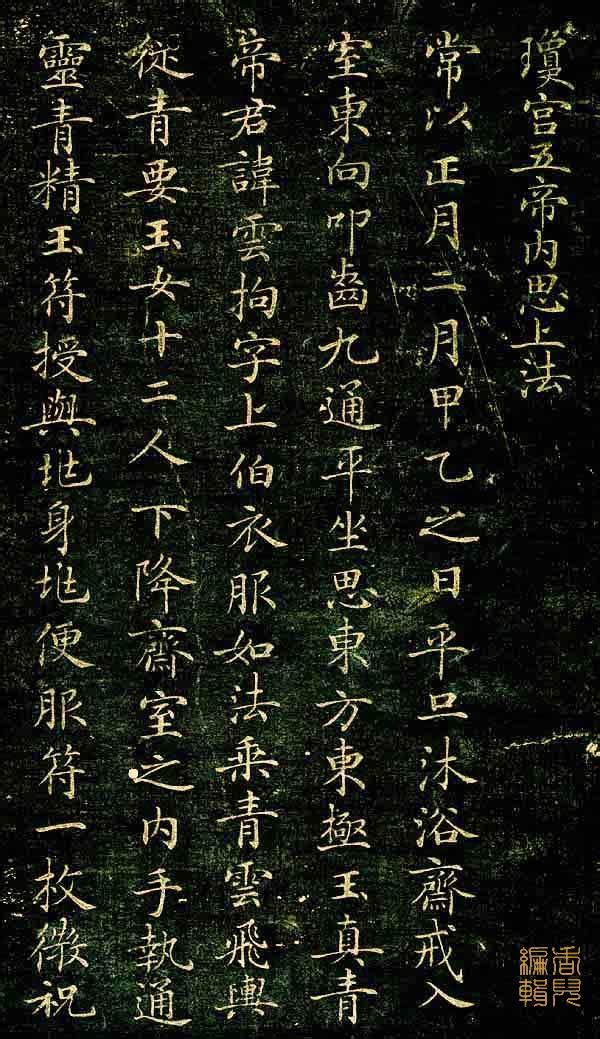 瓊宫五帝内思上法
常以正月二月甲乙之日平旦沐浴齋戒入
室東向叩齒九通平坐思東方東極玉真青
帝君諱雲拘字上伯衣服如法乘青雲飛輿
從青要玉女十二人下降齋室之内手執通
靈青精玉符授與地身地便服符一枚微祝
香兒
編輯